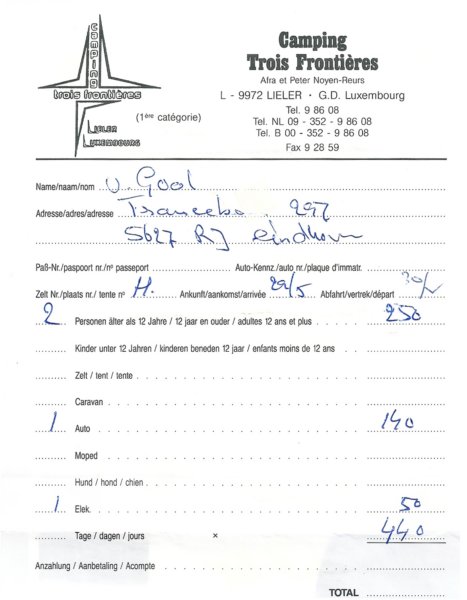 camping
trois frontières
LIELER
LUXEMBOURG
(1ère catégorie)
Camping
Trois Frontières
Afra et Peter Noyen-Reurs
L - 9972 LIELER · G.D. Luxembourg
Tel. 9 86 08
Tel. NL 09 - 352 - 9 86 08
Tel. B 00 - 352 - 9 86 08
Fax 9 28 59
Name/naam/nom v. Gool
Adresse/adres/adresse 297
5627 RJ eindhoven
Paß-Nr./paspoort nr./nº passeport Auto-Kennz./auto nr./plaque d'immatr.
Zelt Nr./plaats nr./ tente nº H. Ankunft/aankomst/arrivée 29/5 Abfahrt/vertrek/départ
2 Personen älter als 12 Jahre / 12 jaar en ouder / adultes 12 ans et plus 250
Kinder unter 12 Jahren / kinderen beneden 12 jaar / enfants moins de 12 ans
Zelt / tent / tente
Caravan
1 Auto 140
Moped
Hund / hond / chien
1 Elek. 50
Tage / dagen / jours × 440
Anzahlung / Aanbetaling / Acompte
TOTAL